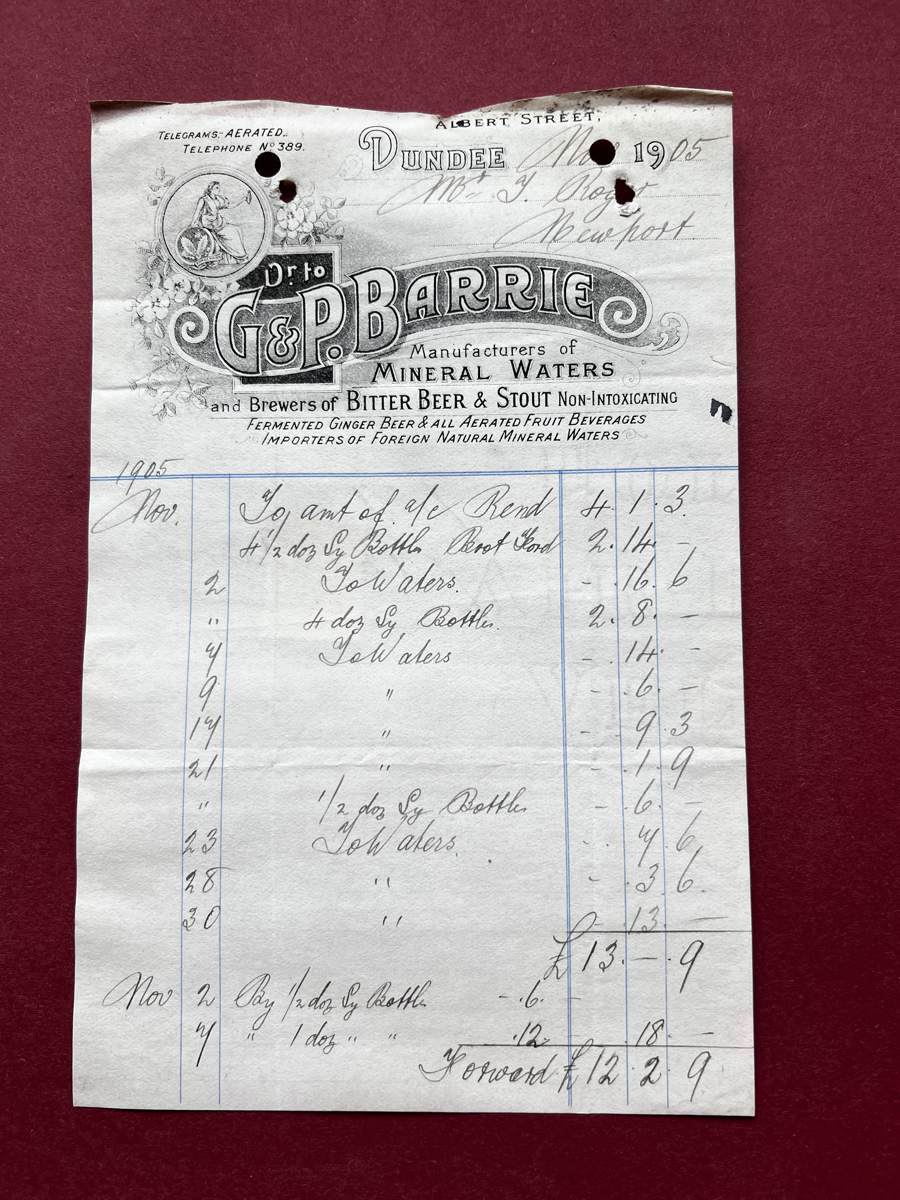 ALBERT STREET,
TELEGRAMS:- AERATED.
TELEPHONE No 389.
DUNDEE Nov 1905
Mr T. Roger
Newport.
Dr. to
G & P. BARRIE
Manufacturers of
MINERAL WATERS
and Brewers of BITTER BEER & STOUT NON-INTOXICATING
FERMENTED GINGER BEER & ALL AERATED FRUIT BEVERAGES
IMPORTERS OF FOREIGN NATURAL MINERAL WATERS
1905
Nov. To amt of a/c Rend 4. 1. 3.
4 1/2 doz Sy Bottles Brot Ford 2. 14. -
2 To Waters. - . 16. 6
" 4 doz Sy Bottles. 2. 8. -
7 To Waters - . 14. -
9 " - . 6. -
17 " - . 9. 3
21 " - . 1. 9
" 1/2 doz Sy Bottles - . 6. -
23 To Waters. - . 7. 6.
28 " - . 3. 6.
30 " - . 13. -
£13. - . 9
Nov 2 By 1/2 doz Sy Bottles - . 6. -
7 " 1 doz " " . 12. - 18. -
Forward £12. 2. 9